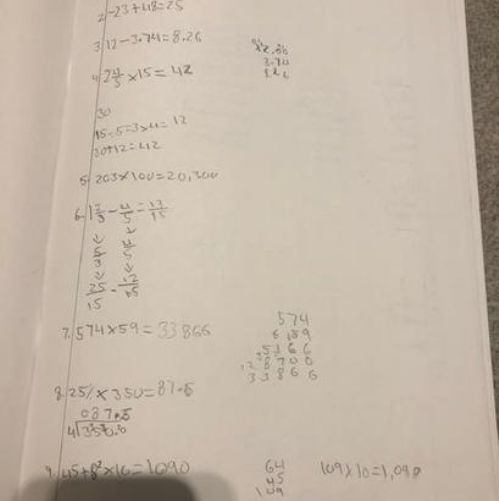 2. -23+48=25
3. 12-3.74=8.26
4. 2 4/5 ×15=42
30
15÷5=3×4=12
30+12=42
5. 203×100=20,300
6. 1 2/3 - 4/5 = 13/15
5/3 4/5
25/15 - 12/15
7. 574×59=33866
574
59
5166
28700
33866
8. 25%×350=87.5
087.5
4
9. 45+8²×10=1090
64
45
109
109×10=1,090